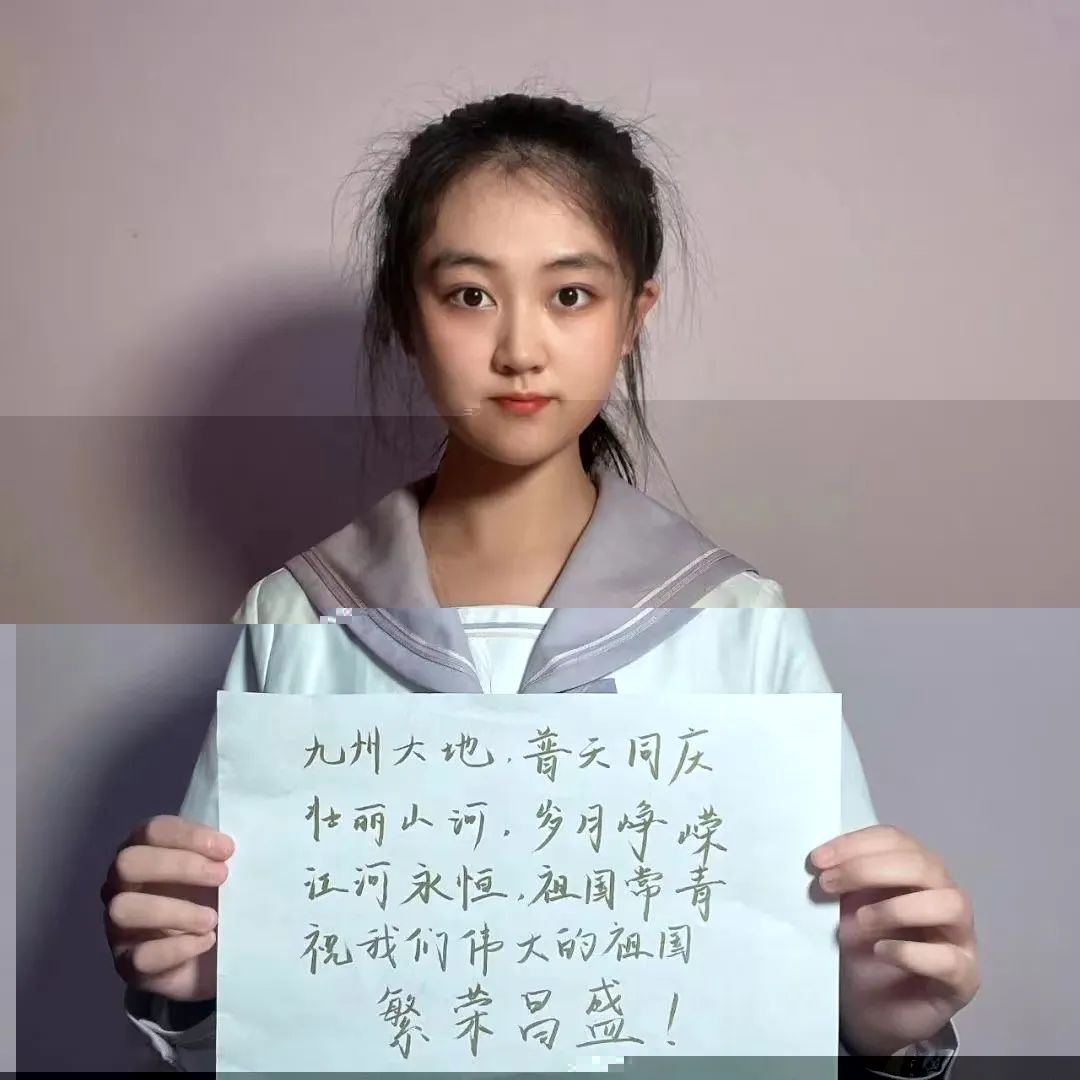 九州大地，普天同庆
壮丽山河，岁月峥嵘
江河永恒，祖国常青
祝我们伟大的祖国
繁荣昌盛！